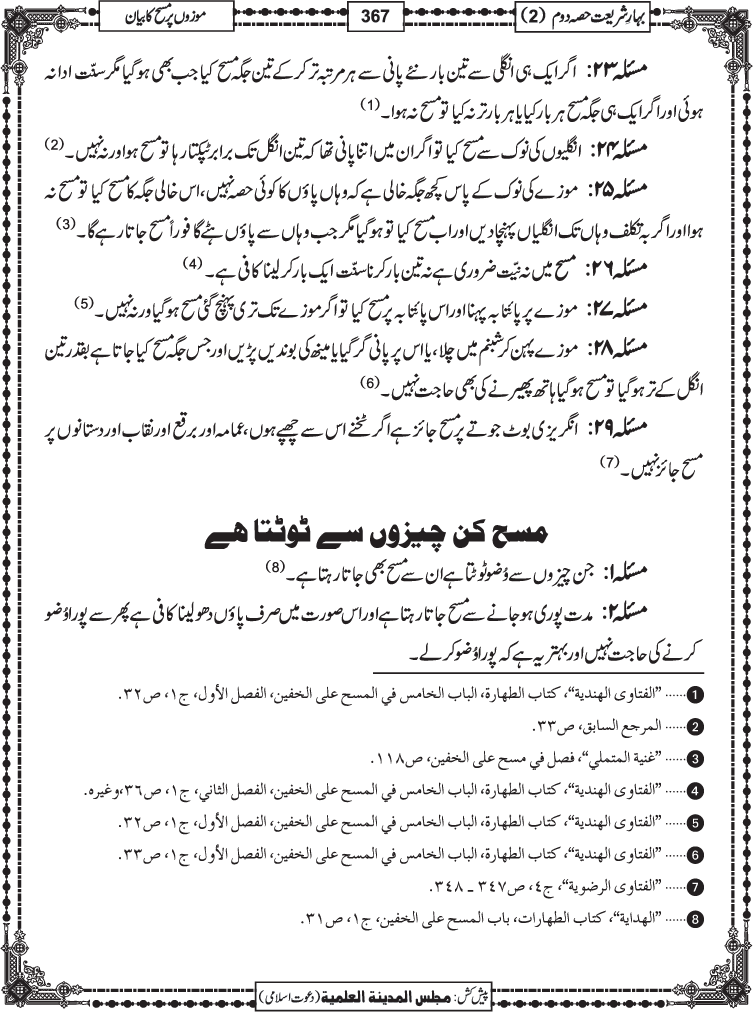 بہارشریعت حصہ دوم (2)
367
موزوں پر مسح کا بیان
مسئلہ ۲۳: اگر ایک ہی انگلی سے تین بار نئے پانی سے ہر مرتبہ تر کرکے تین جگہ مسح کیا جب بھی ہوگیا مگر سنّت ادا نہ
ہوئی اور اگر ایک ہی جگہ مسح ہر بار کیا یا ہر بار تر نہ کیا تو مسح نہ ہوا۔ (1)
مسئلہ ۲۴: انگلیوں کی نوک سے مسح کیا تو اگر ان میں اتنا پانی تھا کہ تین انگل تک برابر ٹپکتا رہا تو مسح ہوا ورنہ نہیں۔ (2)
مسئلہ ۲۵: موزے کی نوک کے پاس کچھ جگہ خالی ہے کہ وہاں پاؤں کا کوئی حصہ نہیں، اس خالی جگہ کا مسح کیا تو مسح نہ
ہوا اور اگر بہ تکلف وہاں تک انگلیاں پہنچا دیں اور اب مسح کیا تو ہوگیا مگر جب وہاں سے پاؤں ہٹے گا فوراً مسح جاتا رہے گا۔ (3)
مسئلہ ۲۶: مسح میں نہ نیّت ضروری ہے نہ تین بار کرنا سنّت ایک بار کر لینا کافی ہے۔ (4)
مسئلہ ۲۷: موزے پر پائتابہ پہنا اور اس پائتابہ پر مسح کیا تو اگر موزے تک تری پہنچ گئی مسح ہوگیا ورنہ نہیں۔ (5)
مسئلہ ۲۸: موزے پہن کر شبنم میں چلا، یا اس پر پانی گر گیا یا مینھ کی بوندیں پڑیں اور جس جگہ مسح کیا جاتا ہے بقدر تین
انگل کے تر ہوگیا تو مسح ہوگیا ہاتھ پھیرنے کی بھی حاجت نہیں۔ (6)
مسئلہ ۲۹: انگریزی بوٹ جوتے پر مسح جائز ہے اگر ٹخنے اس سے چھپے ہوں، عمامہ اور برقع اور نقاب اور دستانوں پر
مسح جائز نہیں۔ (7)
مسح کن چیزوں سے ٹوٹتا ھے
مسئلہ ۱: جن چیزوں سے وُضو ٹوٹتا ہے ان سے مسح بھی جاتا رہتا ہے۔ (8)
مسئلہ ۲: مدت پوری ہو جانے سے مسح جاتا رہتا ہے اور اس صورت میں صرف پاؤں دھو لینا کافی ہے پھر سے پورا وُضو
کرنے کی حاجت نہیں اور بہتر یہ ہے کہ پورا وُضو کرلے۔
1 ...... ”الفتاوی الھندیة“، کتاب الطھارة، الباب الخامس في المسح علی الخفین، الفصل الأول، ج۱، ص۳۲.
2 ...... المرجع السابق، ص۳۳.
3 ...... ”غنیة المتملي“، فصل في مسح علی الخفین، ص۱۱۸.
4 ...... ”الفتاوی الھندیة“، کتاب الطھارة، الباب الخامس في المسح علی الخفین، الفصل الثاني، ج۱، ص۳۶، وغیرہ.
5 ...... ”الفتاوی الھندیة“، کتاب الطھارة، الباب الخامس في المسح علی الخفین، الفصل الأول، ج۱، ص۳۲.
6 ...... ”الفتاوی الھندیة“، کتاب الطھارة، الباب الخامس في المسح علی الخفین، الفصل الأول، ج۱، ص۳۳.
7 ...... ”الفتاوی الرضویة“، ج٤، ص۳٤۷ ـ ۳٤۸.
8 ...... ”الھدایة“، کتاب الطھارات، باب المسح علی الخفین، ج۱، ص۳۱.
پیش کش: مجلس المدینة العلمیة (دعوت اسلامی)